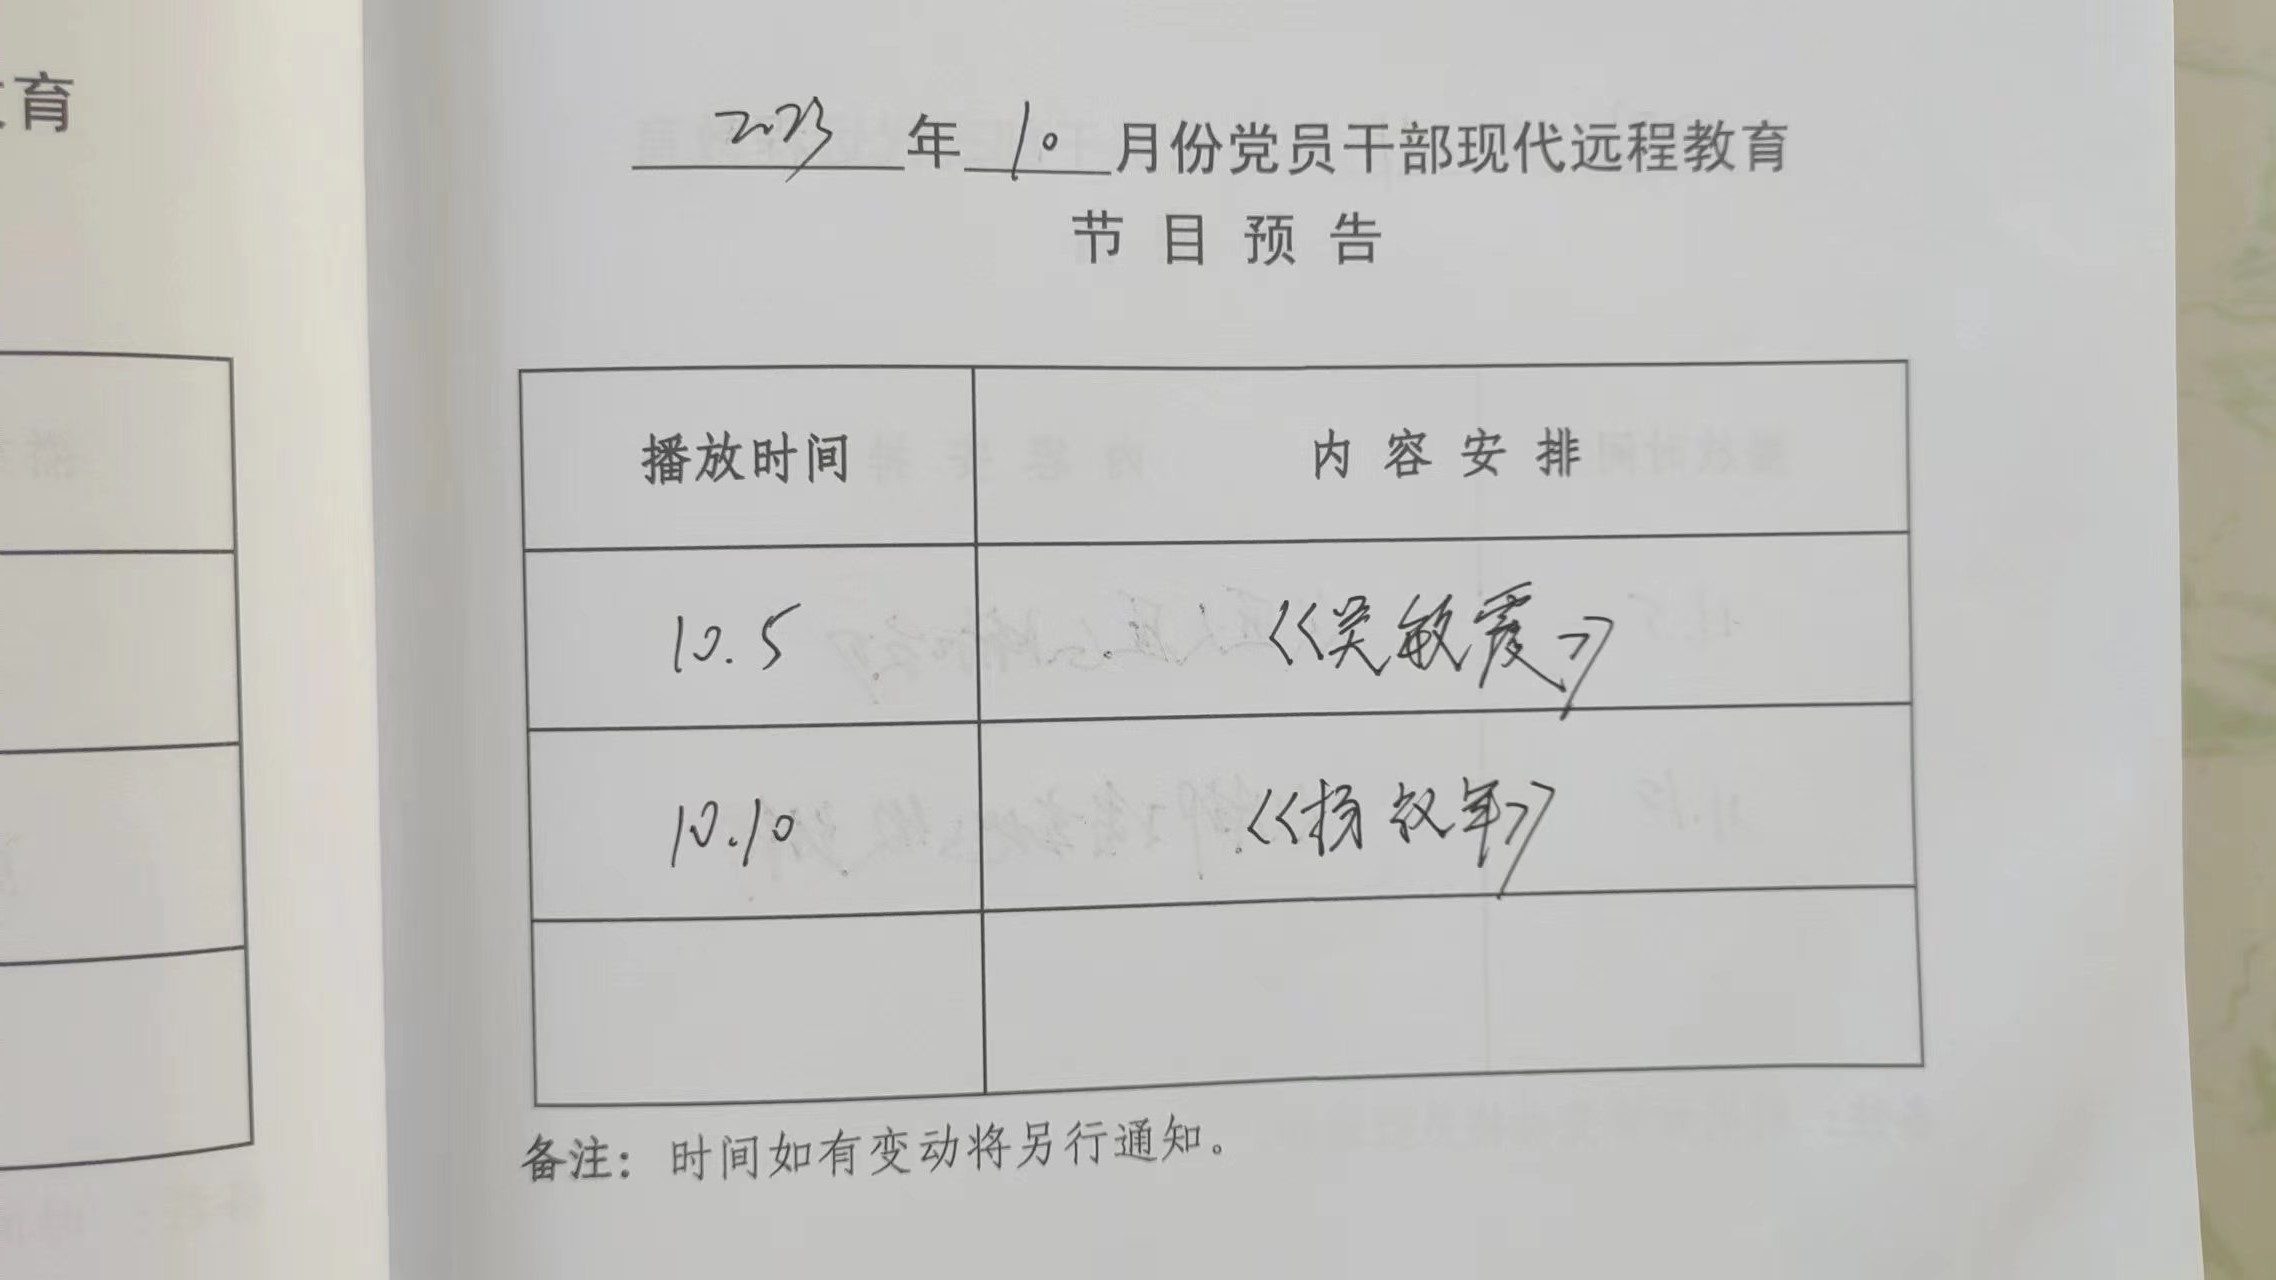 育
2023年10月份党员干部现代远程教育
节目预告
播放时间 内容安排
10.5 《关敏霞》
10.10 《杨叙年》
备注：时间如有变动将另行通知。